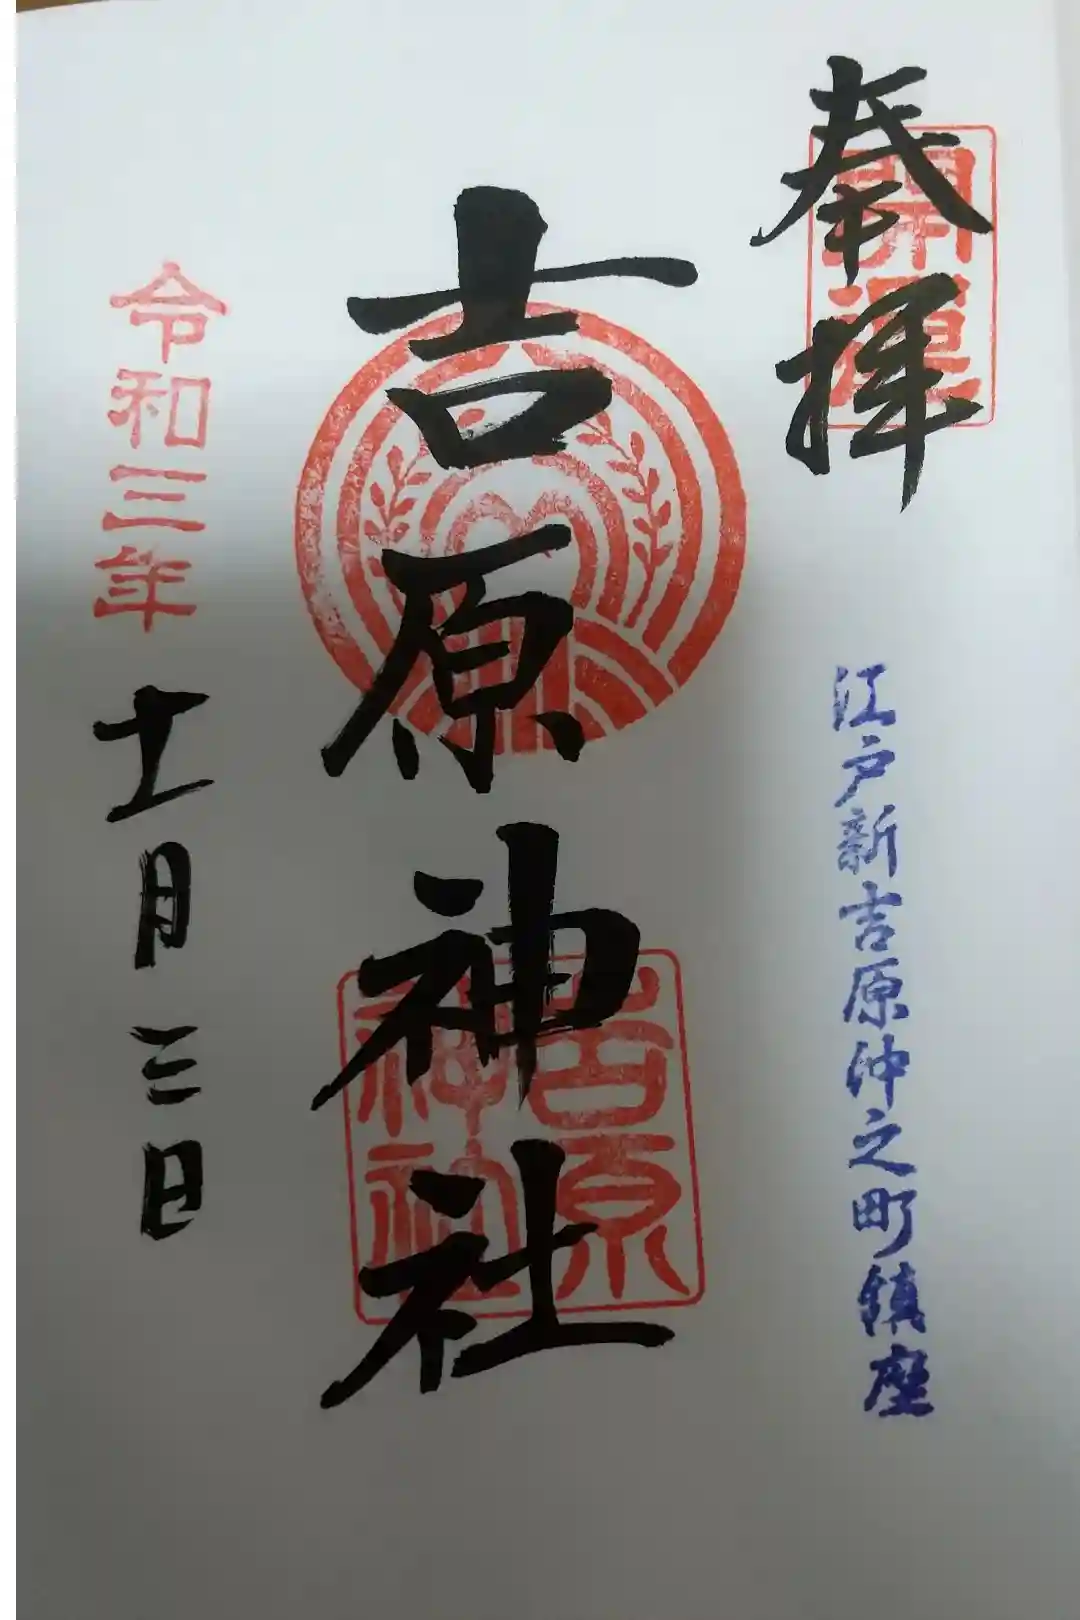 奉拝
開運
江戸新吉原仲之町鎮座
吉原神社
吉原
神社
令和三年十一月三日